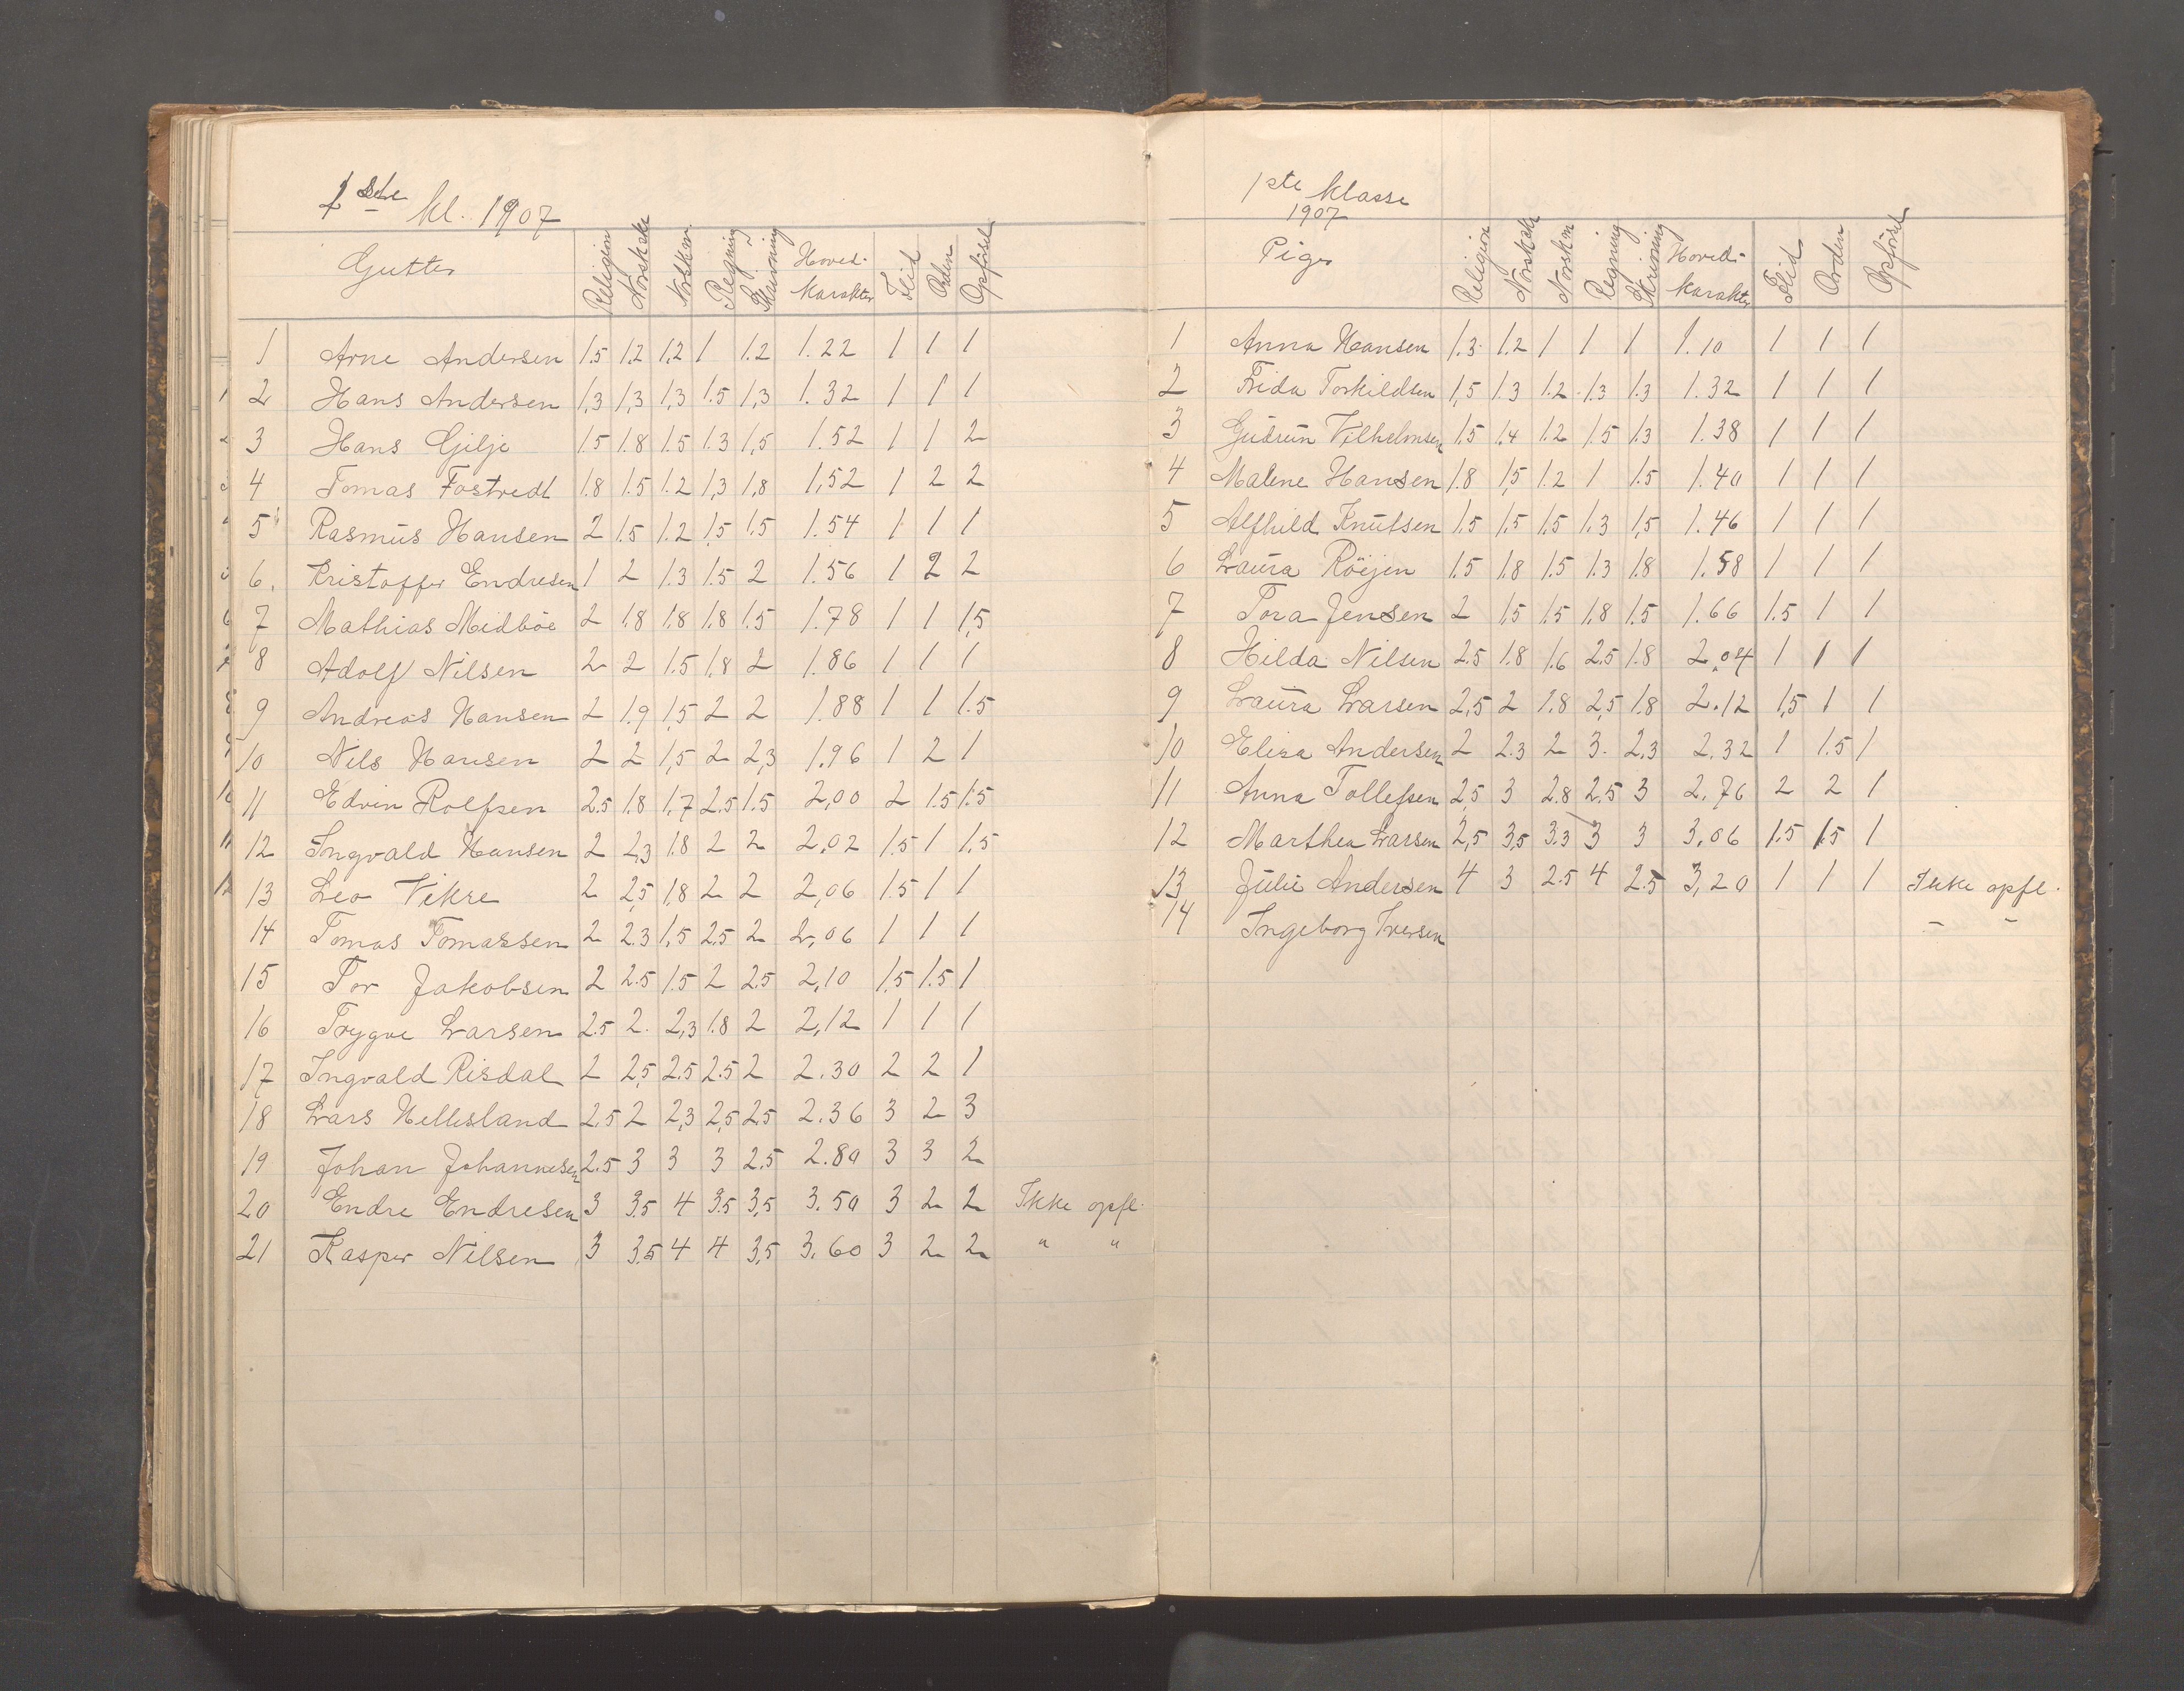 1ste kl. 1907
Gutter Religion Norsk sk. Norsk m. Regning Skrivning Hoved-karakter Flid Orden Opførsel
1 Arne Andersen 1.5 1,2 1,2 1 1.2 1.22 1 1 1
2 Hans Andersen 1,3 1,3 1,3 1.5 1,3 1.32 1 1 1
3 Hans Gilje 1.5 1.8 1.5 1.3 1,5 1.52 1 1 2
4 Tomas Fostvedt 1.8 1.5 1.2 1,3 1,8 1,52 1 2 2
5 Rasmus Hansen 2 1.5 1.2 1,5 1.5 1.54 1 1 1
6. Kristoffer Endresen 1 2 1.3 1.5 2 1.56 1 2 2
7 Mathias Midbøe 2 1.8 1.8 1.8 1.5 1.78 1 1 1,5
8 Adolf Nilsen 2 2 1.5 1.8 2 1.86 1 1 1
9 Andreas Hansen 2 1.9 1,5 2 2 1.88 1 1 1.5
10 Nils Hansen 2 2 1,5 2 2,3 1.96 1 2 1
11 Edvin Rolfsen 2.5 1.8 1.7 2.5 1.5 2,00 2 1.5 1.5
12 Ingvald Hansen 2 2,3 1.8 2 2 2,02 1.5 1 1,5
13 Leo Vikre 2 2,5 1,8 2 2 2,06 1.5 1 1
14 Tomas Tomassen 2 2.3 1,5 2,5 2 2,06 1 1 1
15 Tor Jakobsen 2 2.5 1.5 2 2.5 2,10 1,5 1.5 1
16 Trygve Larsen 2.5 2. 2,3 1.8 2 2,12 1 1 1
17 Ingvald Risdal 2 2,5 2.5 2.5 2 2.30 2 2 1
18 Lars Hellesland 2.5 2 2,3 2,5 2,5 2.36 3 2 3
19 Johan Johannesen 2.5 3 3 3 2.5 2.80 3 3 2
20 Endre Endresen 3 3.5 4 3.5 3,5 3.50 3 2 2 Ikke opfl.
21 Kasper Nilsen 3 3.5 4 4 3,5 3.60 3 2 2 " "
1ste klasse
1907
Piger Religion Norsk sk Norsk m Regning Skrivning Hoved-karakter Flid Orden Opførsel
1 Anna Hansen 1.3. 1.2 1 1 1 1.10 1 1 1
2 Frida Torkildsen 1,5 1.3 1.2 1.3 1.3 1.32 1 1 1
3 Gudrun Vilhelmsen 1.5 1.4 1.2 1.5 1.3 1.38 1 1 1
4 Malene Hansen 1.8 1,5 1.2 1 1.5 1.40 1 1 1
5 Alfhild Knutsen 1.5 1.5 1.5 1.3 1,5 1.46 1 1 1
6 Laura Røijen 1.5 1.8 1.5 1.3 1.8 1.58 1 1 1
7 Tora Jensen 2 1.5 1.5 1.8 1.5 1.66 1.5 1 1
8 Hilda Nilsen 2.5 1.8 1.6 2.5 1.8 2,04 1 1 1
9 Laura Larsen 2,5 2 1.8 2,5 1.8 2.12 1,5 1 1
10 Elisa Andersen 2 2.3 2 3. 2,3 2.32 1 1.5 1
11 Anna Tollefsen 2,5 3 2.8 2.5 3 2.76 2 2 1
12 Marthea Larsen 2,5 3,5 3.3 3 3 3,06 1.5 1.5 1
13 Julie Andersen 4 3 2.5 4 2.5 3,20 1 1 1 Ikke opfl.
14 Ingeborg Iversen – –